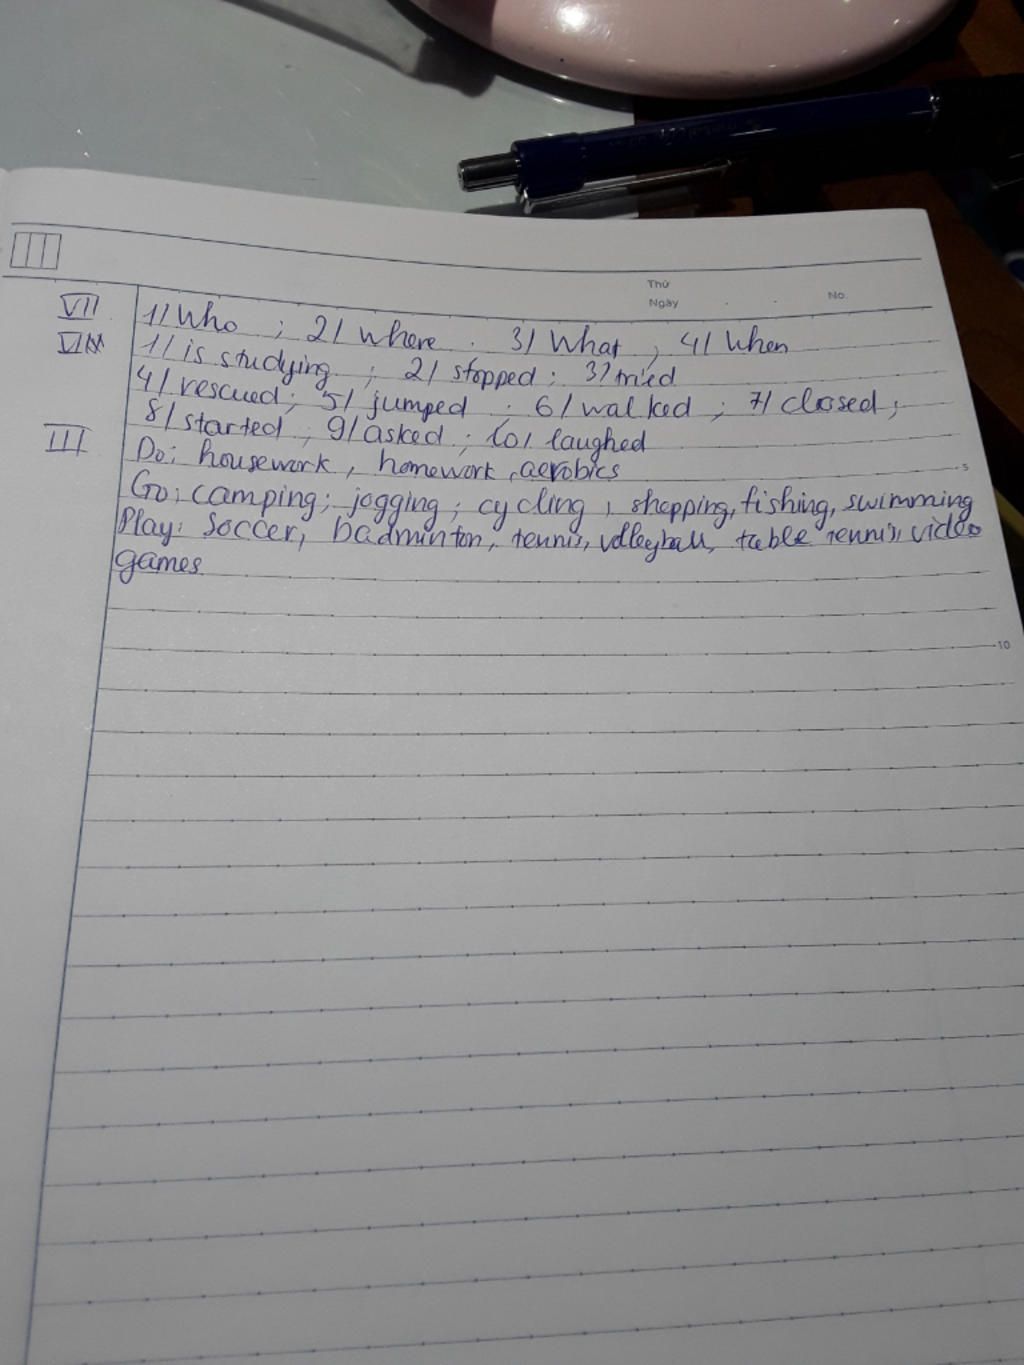 Thứ
Ngày . . No.
VII 1/ Who ; 2/ Where . 3/ What , 4/ When
1/ is studying ; 2/ stopped ; 3/ tried
4/ rescued ; 5/ jumped ; 6/ walked ; 7/ closed ;
8/ started ; 9/ asked ; 10/ laughed
III Do: housework, homework, aerobics
5
Go: camping; jogging; cycling, shopping, fishing, swimming
Play: Soccer, badminton, tennis, volleyball, table tennis, video
games
10